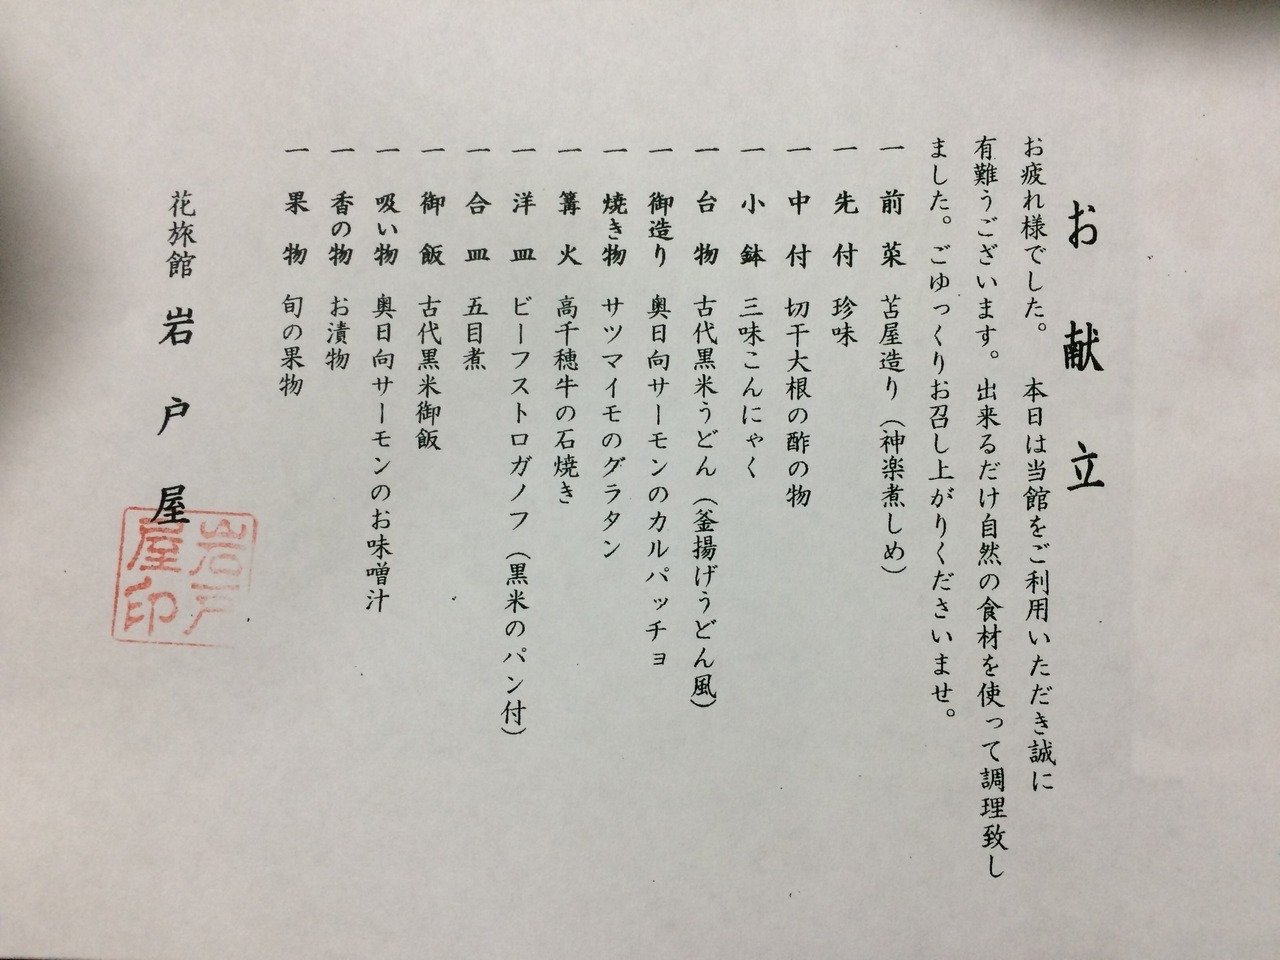 お献立
お疲れ様でした。 本日は当館をご利用いただき誠に
有難うございます。出来るだけ自然の食材を使って調理致し
ました。ごゆっくりお召し上がりくださいませ。
一 前菜 苫屋造り（神楽煮しめ）
一 先付 珍味
一 中付 切干大根の酢の物
一 小鉢 三味こんにゃく
一 台物 古代黒米うどん（釜揚げうどん風）
一 御造り 奥日向サーモンのカルパッチョ
一 焼き物 サツマイモのグラタン
一 篝火 高千穂牛の石焼き
一 洋皿 ビーフストロガノフ（黒米のパン付）
一 合皿 五目煮
一 御飯 古代黒米御飯
一 吸い物 奥日向サーモンのお味噌汁
一 香の物 お漬物
一 果物 旬の果物
花旅館 岩戸屋
岩戸
屋印